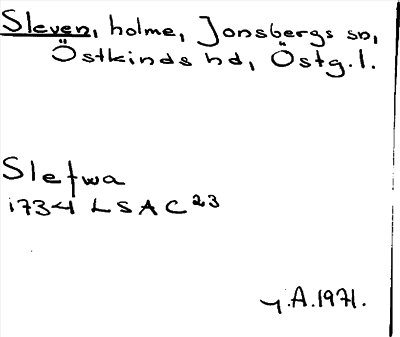 Sleven, holme, Jonsbergs sn,
Östkinds hd, Östg.l.
Slefwa
1734 LSA C 23
y.A.1971.